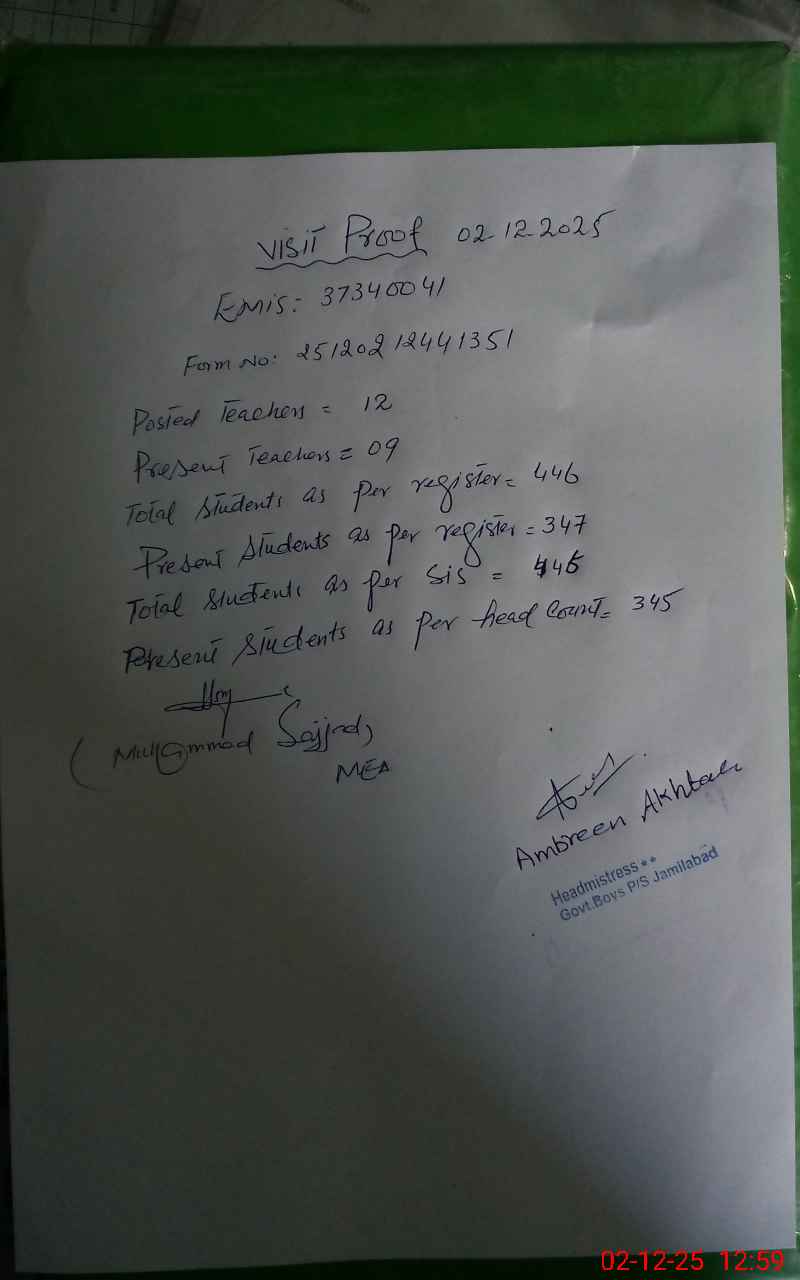 Visit Proof 02.12.2025
EMIS: 37340041
Form No: 25120212441351
Posted Teachers = 12
Present Teachers = 09
Total Students as per register = 446
Present Students as per register = 347
Total Students as per SIS = 446
Present Students as per head count = 345
(Muhammad Sajjad)
MEA
Ambreen Akhtar
Headmistress
Govt.Boys P/S Jamilabad
02-12-25 12:59